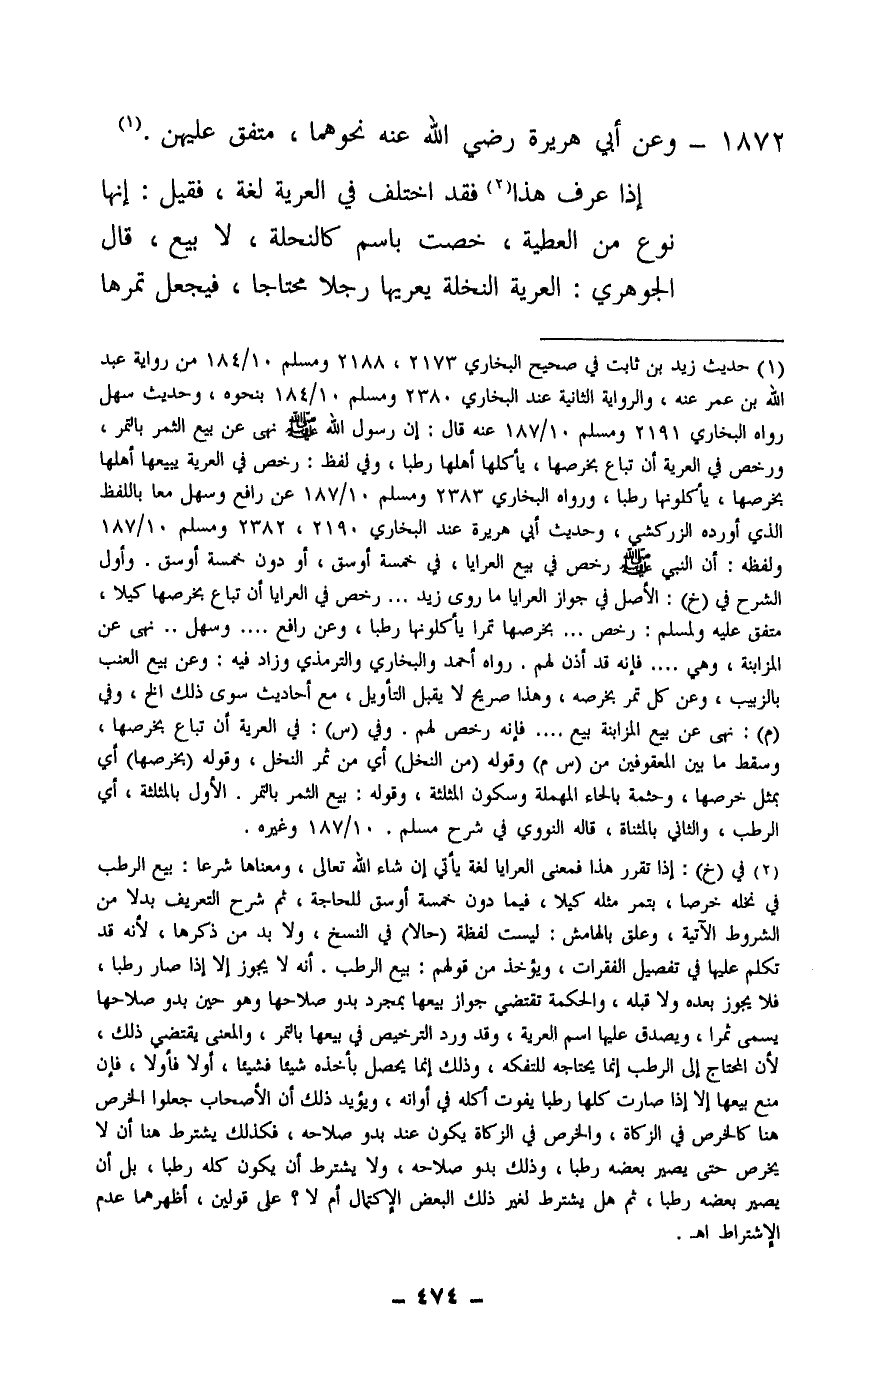 ١٨٧٢ ــ وعن أبي هريرة رضي الله عنه نحوهما ، متفق عليهن .(١)
إذا عرف هذا(٢) فقد اختلف في العرية لغة ، فقيل : إنها
نوع من العطية ، خصت باسم كالنحلة ، لا بيع ، قال
الجوهري : العرية النخلة يعريها رجلا محتاجا ، فيجعل تمرها
(١) حديث زيد بن ثابت في صحيح البخاري ٢١٧٣ ، ٢١٨٨ ومسلم ١٨٤/١٠ من رواية عبد
الله بن عمر عنه ، والرواية الثانية عند البخاري ٢٣٨٠ ومسلم ١٨٤/١٠ بنحوه ، وحديث سهل
رواه البخاري ٢١٩١ ومسلم ١٨٧/١٠ عنه قال : إن رسول الله ﷺ نهى عن بيع الثمر بالتمر ،
ورخص في العرية أن تباع بخرصها ، يأكلها أهلها رطبا ، وفي لفظ : رخص في العرية يبيعها أهلها
بخرصها ، يأكلونها رطبا ، ورواه البخاري ٢٣٨٣ ومسلم ١٨٧/١٠ عن رافع وسهل معا باللفظ
الذي أورده الزركشي ، وحديث أبي هريرة عند البخاري ٢١٩٠ ، ٢٣٨٢ ومسلم ١٨٧/١٠
ولفظه : أن النبي ﷺ رخص في بيع العرايا ، في خمسة أوسق ، أو دون خمسة أوسق . وأول
الشرح في (خ) : الأصل في جواز العرايا ما روى زيد ... رخص في العرايا أن تباع بخرصها كيلا ،
متفق عليه ولمسلم : رخص ... بخرصها تمرا يأكلونها رطبا ، وعن رافع .... وسهل .. نهى عن
المزابنة ، وهي .... فإنه قد أذن لهم . رواه أحمد والبخاري والترمذي وزاد فيه : وعن بيع العنب
بالزبيب ، وعن كل تمر بخرصه ، وهذا صريح لا يقبل التأويل ، مع أحاديث سوى ذلك الخ ، وفي
(م) : نهى عن بيع المزابنة بيع .... فإنه رخص لهم . وفي (س) : في العرية أن تباع بخرصها ،
وسقط ما بين المعقوفين من (س م) وقوله (من النخل) أي من ثمر النخل ، وقوله (بخرصها) أي
بمثل خرصها ، وحثمة بالحاء المهملة وسكون المثلثة ، وقوله : بيع الثمر بالتمر . الأول بالمثلثة ، أي
الرطب ، والثاني بالمثناة ، قاله النووي في شرح مسلم . ١٨٧/١٠ وغيره .
(٢) في (خ) : إذا تقرر هذا فمعنى العرايا لغة يأتي إن شاء الله تعالى ، ومعناها شرعا : بيع الرطب
في نخله خرصا ، بتمر مثله كيلا ، فيما دون خمسة أوسق للحاجة ، ثم شرح التعريف بدلا من
الشروط الآتية ، وعلق بالهامش : ليست لفظة (حالا) في النسخ ، ولا بد من ذكرها ، لأنه قد
تكلم عليها في تفصيل الفقرات ، ويؤخذ من قولهم : بيع الرطب . أنه لا يجوز إلا إذا صار رطبا ،
فلا يجوز بعده ولا قبله ، والحكمة تقتضي جواز بيعها بمجرد بدو صلاحها وهو حين بدو صلاحها
يسمى ثمرا ، ويصدق عليها اسم العرية ، وقد ورد الترخيص في بيعها بالتمر ، والمعنى يقتضي ذلك ،
لأن المحتاج إلى الرطب إنما يحتاجه للتفكه ، وذلك إنما يحصل بأخذه شيئا فشيئا ، أولا فأولا ، فإن
منع بيعها إلا إذا صارت كلها رطبا يفوت أكله في أوانه ، ويؤيد ذلك أن الأصحاب جعلوا الخرص
هنا كالخرص في الزكاة ، والخرص في الزكاة يكون عند بدو صلاحه ، فكذلك يشترط هنا أن لا
يخرص حتى يصير بعضه رطبا ، وذلك بدو صلاحه ، ولا يشترط أن يكون كله رطبا ، بل أن
يصير بعضه رطبا ، ثم هل يشترط لغير ذلك البعض الإكتمال أم لا ؟ على قولين ، أظهرهما عدم
الإشتراط اهـ .
ــ ٤٧٤ ــ